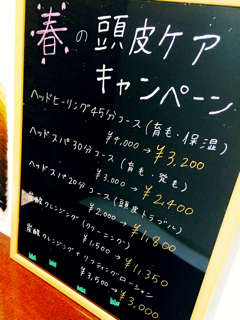 春の頭皮ケア
キャンペーン
ヘッドヒーリング45分コース(育毛・保湿)
¥4,000→¥3,200
ヘッドスパ30分コース(育毛・発毛)
¥3,000→¥2,400
ヘッドスパ20分コース(頭皮トラブル)
¥2,000→¥1,800
炭酸クレンジング(クリーニング)
¥1,500→¥1,350
炭酸クレンジング+リフティングローション
¥3,500→¥3,000